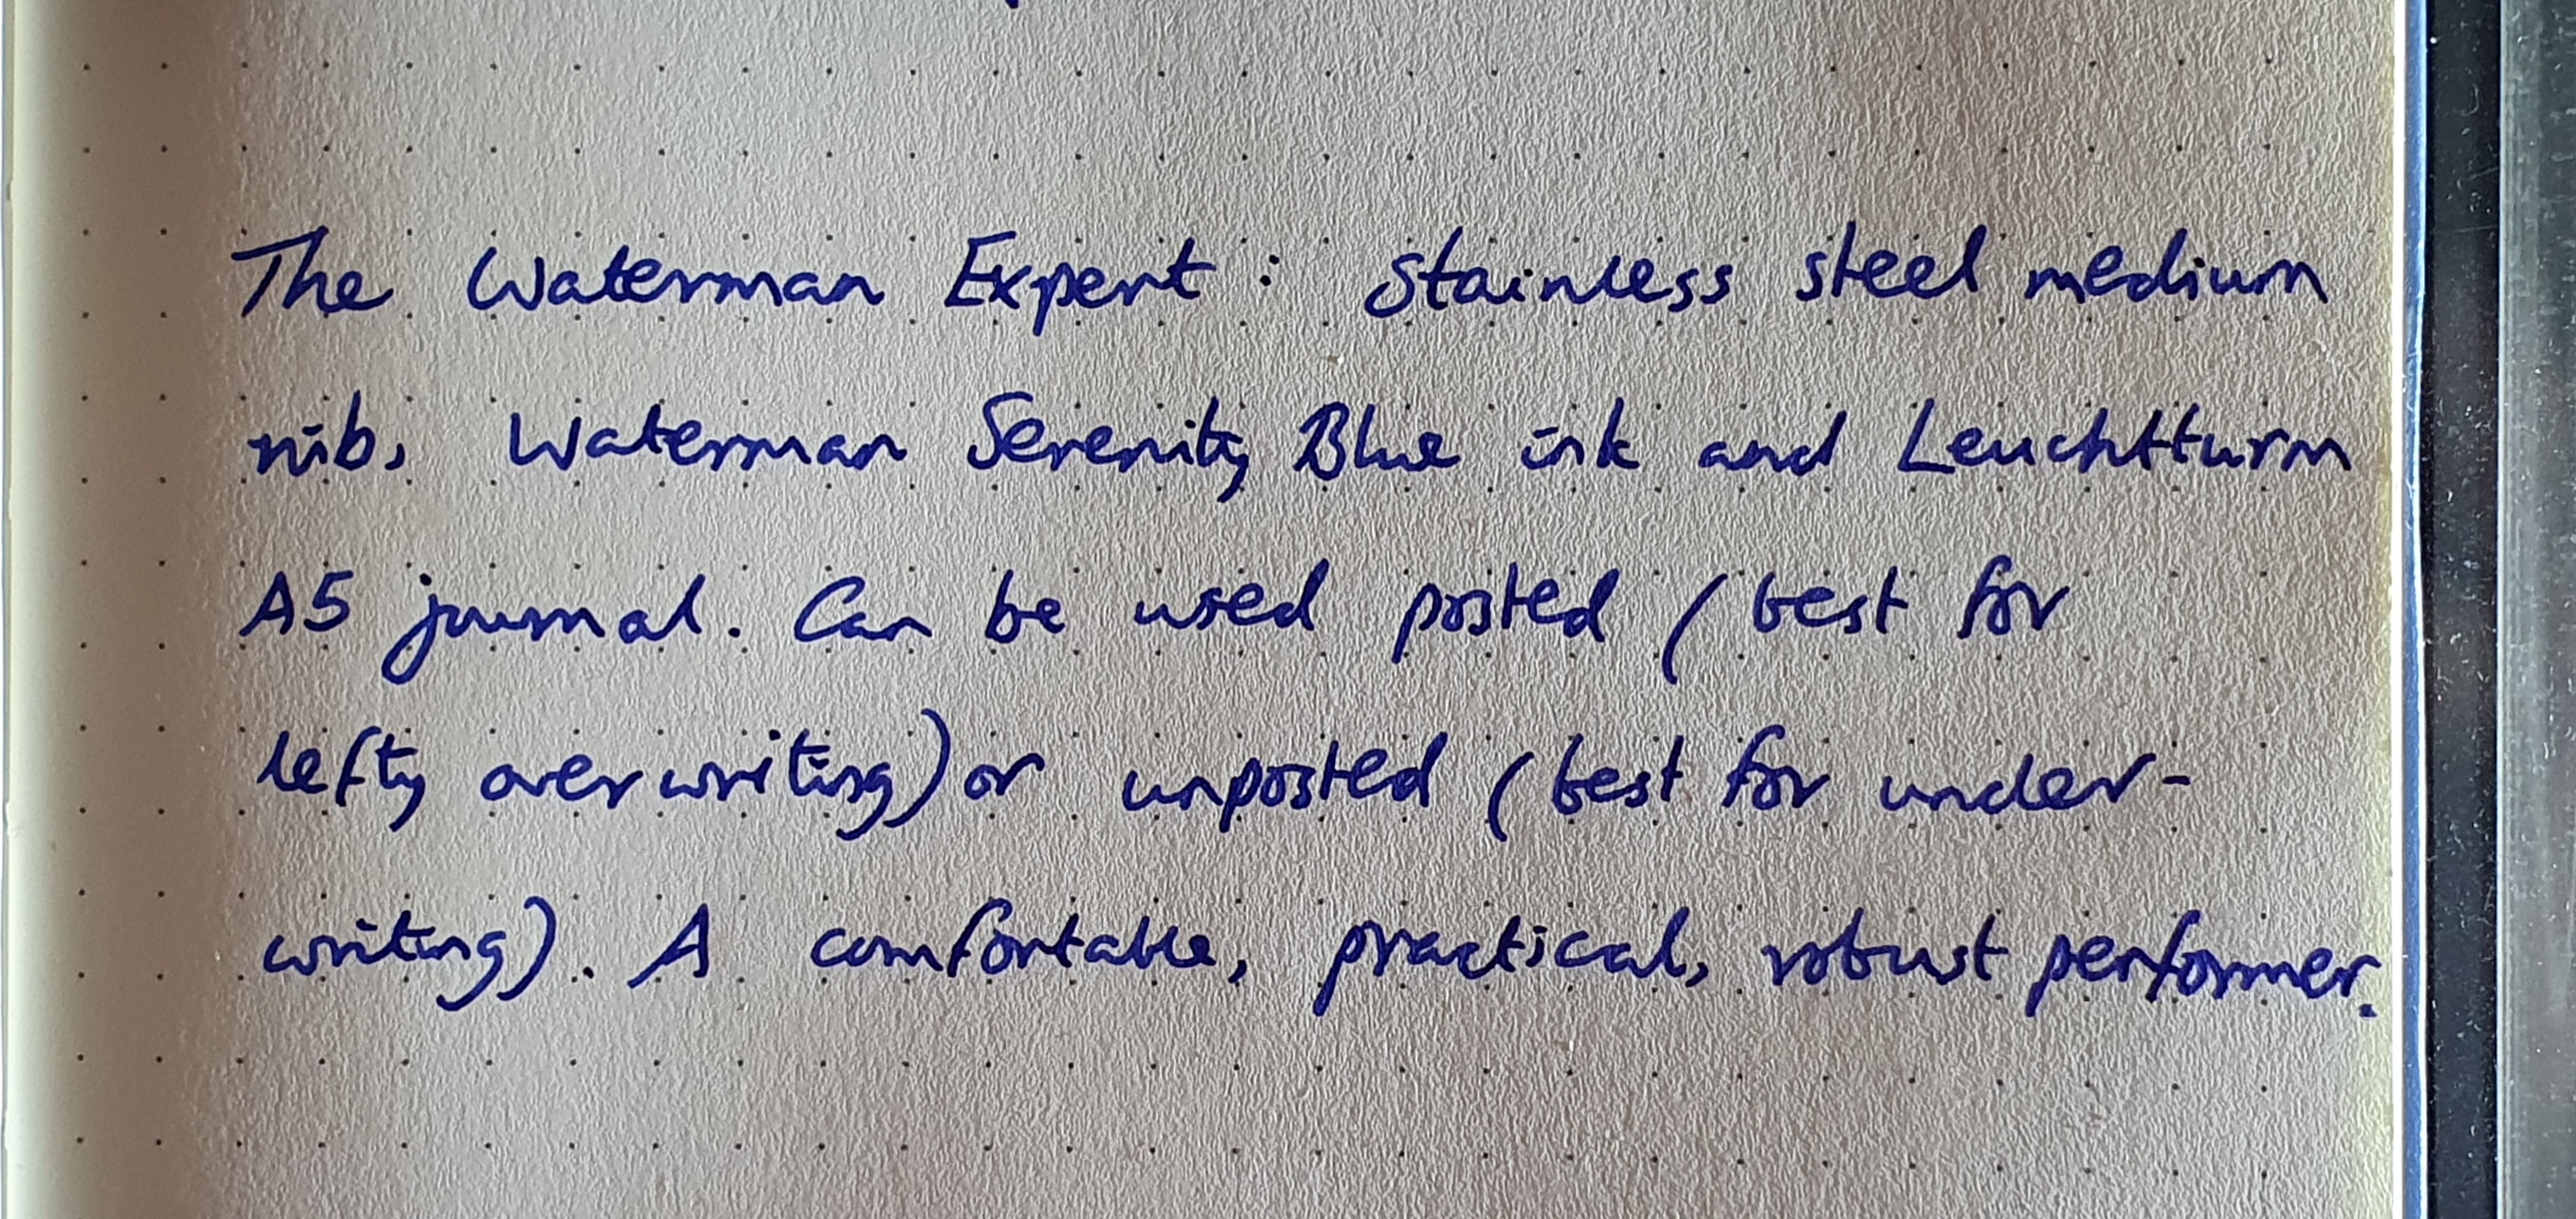 The Waterman Expert: Stainless steel medium
nib, Waterman Serenity Blue ink and Leuchtturm
A5 journal. Can be used posted (best for
lefty overwriting) or unposted (best for under-
writing). A comfortable, practical, robust performer.